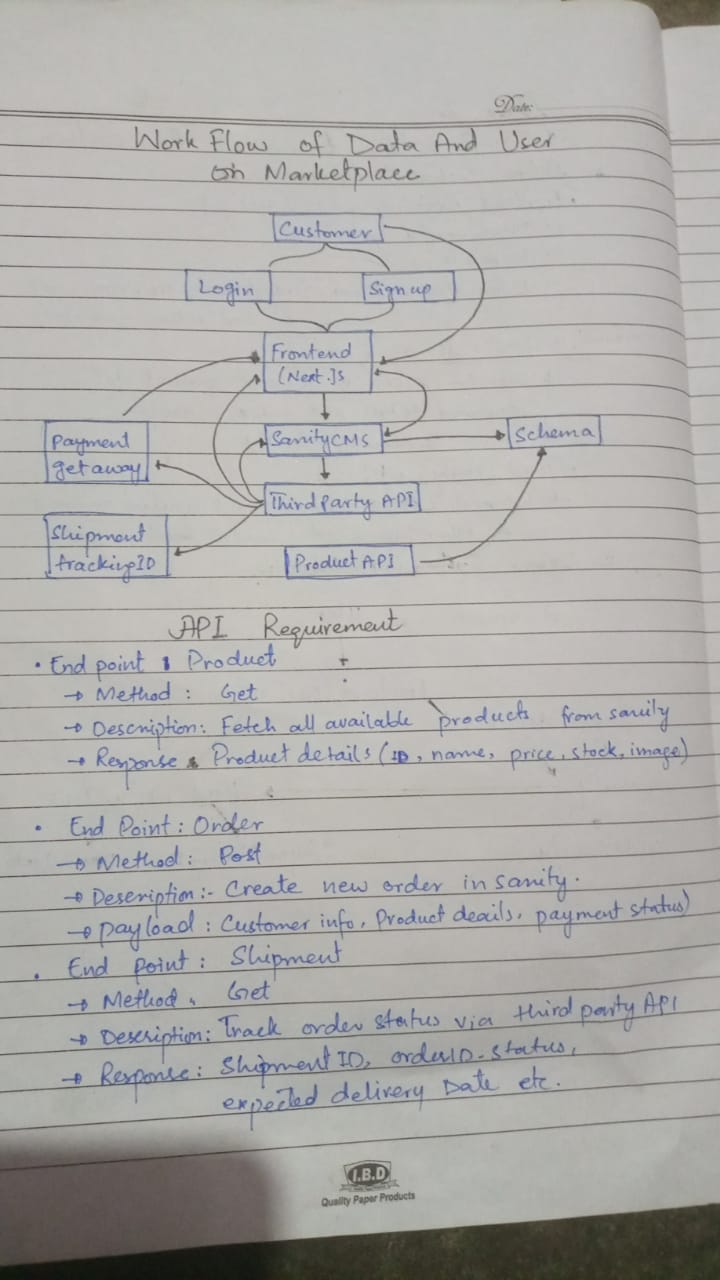 Date:
Work Flow of Data And User
on Marketplace
Customer
Login
Signup
Frontend
(Next.Js
Payment
getaway
SanityCMS
Schema
Third Party API
Shipment
trackingID
Product API
API Requirement
• End point : Product
→ Method : Get
→ Description : Fetch all available products from sanity
→ Response : Product details (ID, name, price, stock, image)
• End Point : Order
→ Method : Post
→ Description :- Create new order in sanity.
→ Payload : Customer info, Product deails, payment status)
• End point : Shipment
→ Method : Get
→ Description : Track order status via third party API
→ Response : Shipment ID, orderID-status,
expected delivery Date etc.
I.B.D
Quality Paper Products